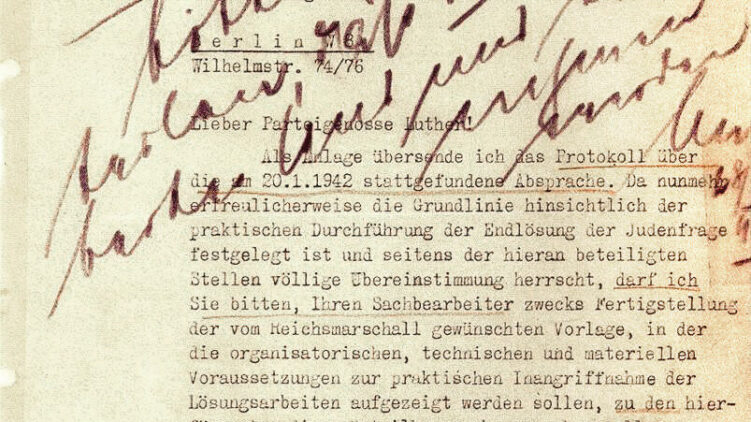 B e r l i n W 8,
Wilhelmstr. 74/76
Lieber Parteigenosse Luther!
Als Anlage übersende ich das Protokoll über
die am 20.1.1942 stattgefundene Absprache. Da nunmehr
erfreulicherweise die Grundlinie hinsichtlich der
praktischen Durchführung der Endlösung der Judenfrage
festgelegt ist und seitens der hieran beteiligten
Stellen völlige Übereinstimmung herrscht, darf ich
Sie bitten, Ihren Sachbearbeiter zwecks Fertigstellung
der vom Reichsmarschall gewünschten Vorlage, in der
die organisatorischen, technischen und materiellen
Voraussetzungen zur praktischen Inangriffnahme der
Lösungsarbeiten aufgezeigt werden sollen, zu den hier-